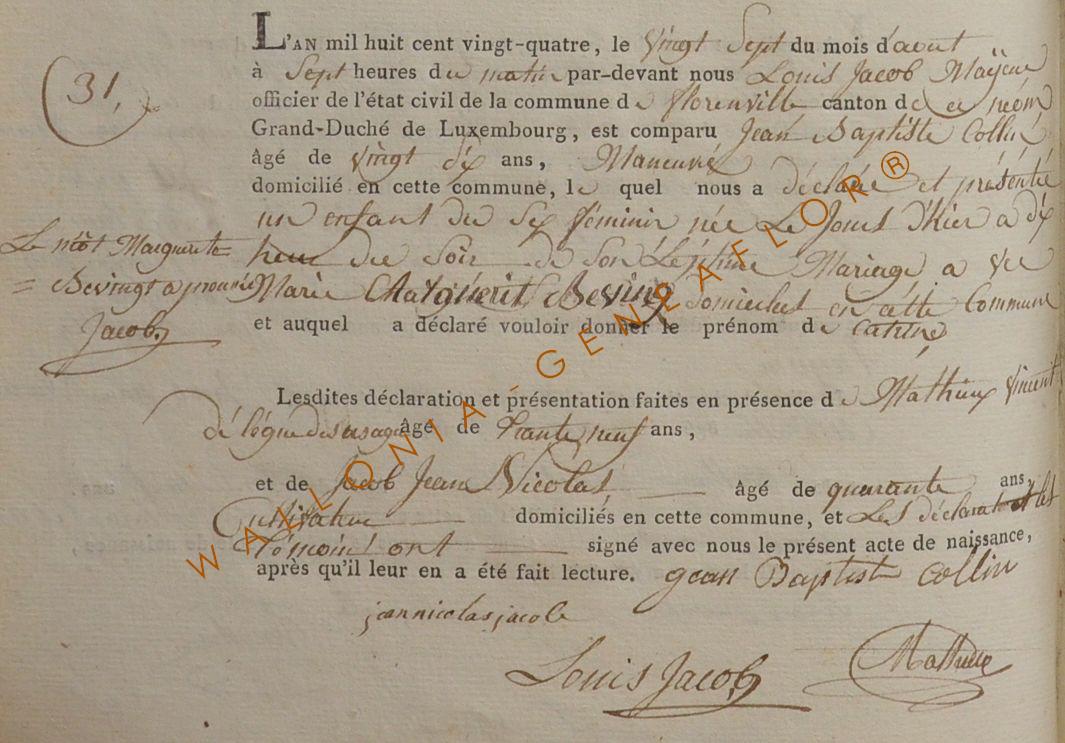 31.
L'AN mil huit cent vingt-quatre, le vingt Sept du mois d'aout
à Sept heures du matin par-devant nous Louis Jacob Mayeur
officier de l'état civil de la commune de florenville canton de ce nom
Grand-Duché de Luxembourg, est comparu Jean Baptiste Collin
âgé de vingt six ans, Maneuvre
domicilié en cette commune, le quel nous a déclaré et présenté
un enfant du Sex féminin née Le Jours d'hier a dix
heur du Soir de Son Légitime Mariage a vec
Marie Margueritte Bevingt domicilies en cette Commune
Le mot Marguerite
= Bevingt approuvé
Jacob
et auquel a déclaré vouloir donner le prénom de Catrine
Lesdites déclaration et présentation faites en présence de Mathieu Vincent
âgé de trante neuf ans,
et de Jacob Jean Nicolas âgé de quarante ans
Cultivateur domiciliés en cette commune, et Les déclarant et les
témoins ont signé avec nous le présent acte de naissance,
après qu'il leur en a été fait lecture. gean Baptist collin
jannicolasjacob
Louis Jacob
Mathieu
WALLONIA GENEAFLOR®